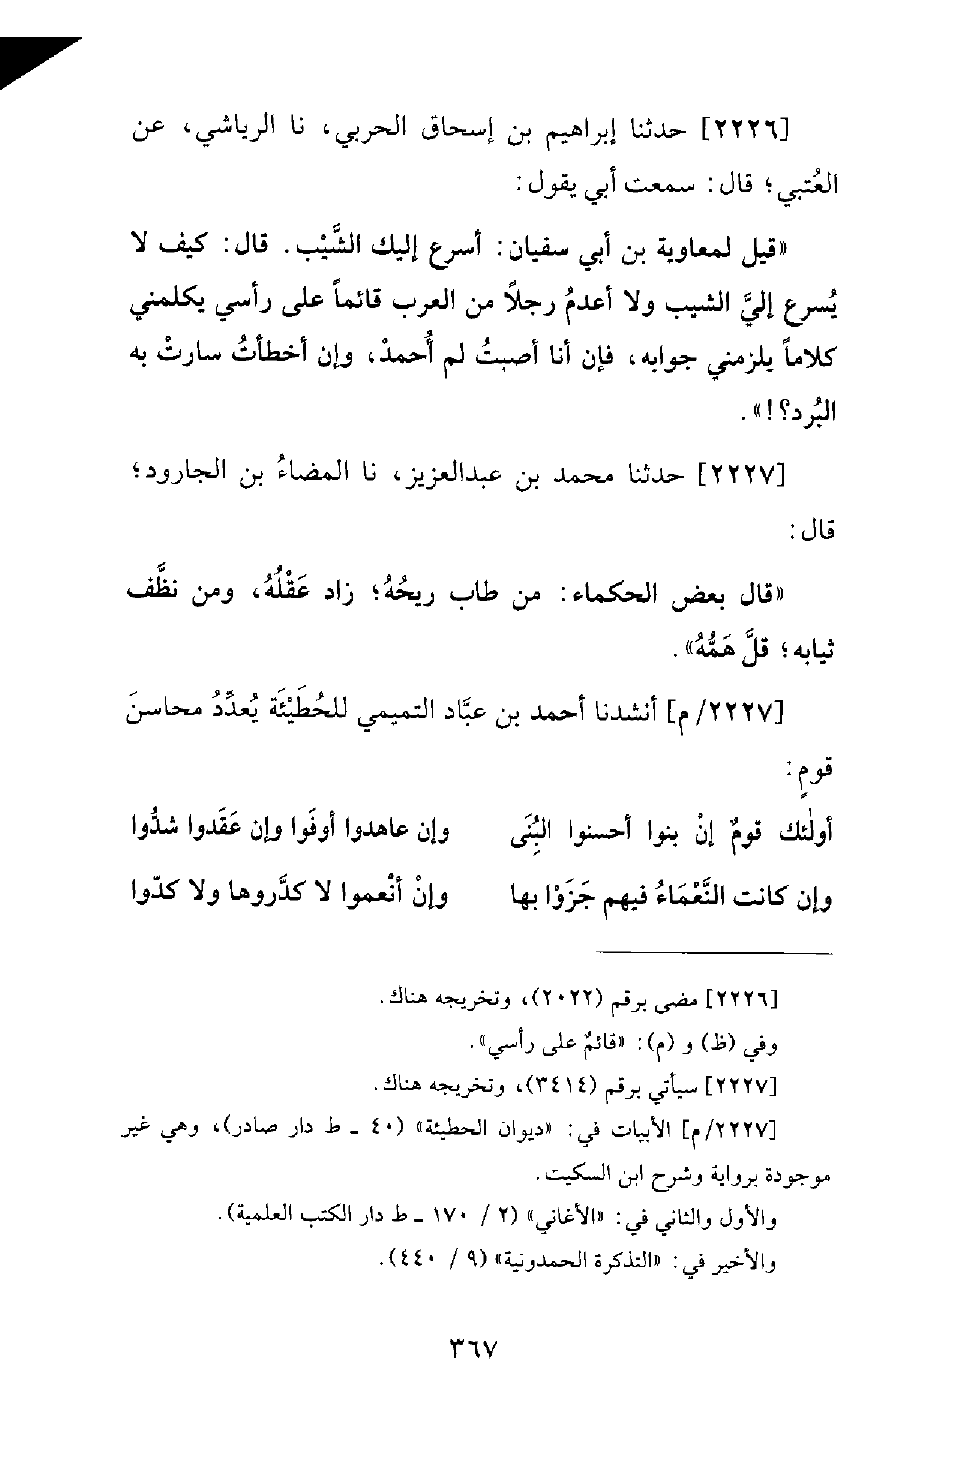 [٢٢٢٦] حدثنا إبراهيم بن إسحاق الحربي، نا الرياشي، عن
العُتبي؛ قال: سمعت أبي يقول:
«قيل لمعاوية بن أبي سفيان: أسرع إليك الشَّيْب. قال: كيف لا
يُسرع إليَّ الشيب ولا أعدمُ رجلاً من العرب قائماً على رأسي يكلمني
كلاماً يلزمني جوابه، فإن أنا أصبتُ لم أُحمدْ، وإن أخطأتُ سارتْ به
البُرد؟!».
[٢٢٢٧] حدثنا محمد بن عبدالعزيز، نا المضاءُ بن الجارود؛
قال:
«قال بعض الحكماء: من طاب ريحُهُ؛ زاد عَقْلُهُ، ومن نظَّف
ثيابه؛ قلَّ هَمُّهُ».
[٢٢٢٧/ م] أنشدنا أحمد بن عبَّاد التميمي للحُطَيْئَة يُعدِّدُ محاسنَ
قومٍ:
أولٰئك قومٌ إنْ بنوا أحسنوا البُِنَى وإن عاهدوا أوفَوا وإن عَقَدوا شدُّوا
وإن كانت النَّعْمَاءُ فيهم جَزَوْا بها وإنْ أنْعموا لا كدَّروها ولا كدّوا
[٢٢٢٦] مضى برقم (٢٠٢٢)، وتخريجه هناك.
وفي (ظ) و (م): «قائمٌ على رأسي».
[٢٢٢٧] سيأتي برقم (٣٤١٤)، وتخريجه هناك.
[٢٢٢٧/م] الأبيات في: «ديوان الحطيئة» (٤٠ ـ ط دار صادر)، وهي غير
موجودة برواية وشرح ابن السكيت.
والأول والثاني في: «الأغاني» (٢ / ١٧٠ ـ ط دار الكتب العلمية).
والأخير في: «التذكرة الحمدونية» (٩ / ٤٤٠).
٣٦٧